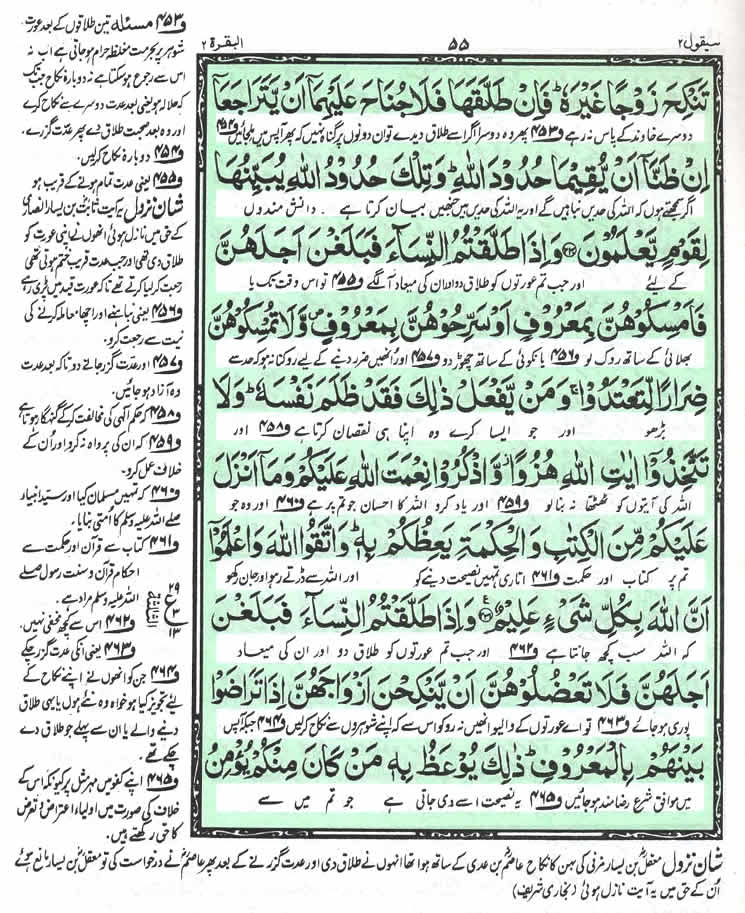 سیقول ۲
۵۵
البقرة ۲
تَنْكِحَ زَوْجًا غَيْرَهٗ ؕ فَاِنْ طَلَّقَهَا فَلَا جُنَاحَ عَلَيْهِمَاۤ اَنْ يَّتَرَاجَعَاۤ
دوسرے خاوند کے پاس نہ رہے ف۴۵۳ پھر وہ دوسرا اگر اسے طلاق دیدے تو ان دونوں پر گناہ نہیں کہ پھر آپس میں مل جائیں ف۴۵۴
اِنْ ظَنَّاۤ اَنْ يُّقِيْمَا حُدُوْدَ اللّٰهِ ؕ وَتِلْكَ حُدُوْدُ اللّٰهِ يُبَيِّنُهَا
اگر سمجھتے ہوں کہ اللہ کی حدیں نباہیں گے اور یہ اللہ کی حدیں ہیں جنھیں بیان کرتا ہے۔ دانش مندوں
لِقَوْمٍ يَّعْلَمُوْنَ ۝ وَاِذَا طَلَّقْتُمُ النِّسَآءَ فَبَلَغْنَ اَجَلَهُنَّ
کے لیئے اور جب تم عورتوں کو طلاق دو اور ان کی میعاد آ لگے ف۴۵۵ تو اس وقت تک یا
فَاَمْسِكُوْهُنَّ بِمَعْرُوْفٍ اَوْ سَرِّحُوْهُنَّ بِمَعْرُوْفٍ وَّلَا تُمْسِكُوْهُنَّ
بھلائی کے ساتھ روک لو ف۴۵۶ یا نکوئی کے ساتھ چھوڑ دو ف۴۵۷ اور انھیں ضرر دینے کے لیے روکنا نہ ہو کہ حد سے
ضِرَارًا لِّتَعْتَدُوْا ۚ وَمَنْ يَّفْعَلْ ذٰلِكَ فَقَدْ ظَلَمَ نَفْسَهٗ ؕ وَلَا
بڑھو اور جو ایسا کرے وہ اپنا ہی نقصان کرتا ہے ف۴۵۸ اور
تَتَّخِذُوْۤا اٰيٰتِ اللّٰهِ هُزُوًا ؗ وَّاذْكُرُوْا نِعْمَتَ اللّٰهِ عَلَيْكُمْ وَمَاۤ اَنْزَلَ
اللہ کی آیتوں کو ٹھٹھا نہ بنا لو ف۴۵۹ اور یاد کرو اللہ کا احسان جو تم پر ہے ف۴۶۰ اور وہ جو
عَلَيْكُمْ مِّنَ الْكِتٰبِ وَالْحِكْمَةِ يَعِظُكُمْ بِهٖ ؕ وَاتَّقُوا اللّٰهَ وَاعْلَمُوْۤا
تم پر کتاب اور حکمت ف۴۶۱ اتاری تمہیں نصیحت دینے کو اور اللہ سے ڈرتے رہو اور جان رکھو
اَنَّ اللّٰهَ بِكُلِّ شَیْءٍ عَلِيْمٌ ۝ وَاِذَا طَلَّقْتُمُ النِّسَآءَ فَبَلَغْنَ
کہ اللہ سب کچھ جانتا ہے ف۴۶۲ اور جب تم عورتوں کو طلاق دو اور ان کی میعاد
اَجَلَهُنَّ فَلَا تَعْضُلُوْهُنَّ اَنْ يَّنْكِحْنَ اَزْوَاجَهُنَّ اِذَا تَرَاضَوْا
پوری ہو جائے ف۴۶۳ تو اے عورتوں کے والیو انھیں نہ روکو اس سے کہ اپنے شوہروں سے نکاح کر لیں ف۴۶۴ جبکہ آپس
بَيْنَهُمْ بِالْمَعْرُوْفِ ؕ ذٰلِكَ يُوْعَظُ بِهٖ مَنْ كَانَ مِنْكُمْ يُؤْمِنُ
میں موافق شرع رضامند ہو جائیں ف۴۶۵ یہ نصیحت اسے دی جاتی ہے جو تم میں سے
ف۴۵۳ مسئلہ تین طلاقوں کے بعد عورت
شوہر پر بحرمت مغلظہ حرام ہو جاتی ہے اب نہ
اس سے رجوع ہو سکتا ہے نہ دوبارہ نکاح جبتک
کہ حلالہ ہو یعنی بعد عدت دوسرے سے نکاح کرے
اور وہ بعد صحبت طلاق دے پھر عدت گزرے۔
ف۴۵۴ دوبارہ نکاح کرلیں۔
ف۴۵۵ یعنی عدت تمام ہونے کے قریب ہو
شان نزول یہ آیت ثابت بن یسار انصاری
کے حق میں نازل ہوئی انھوں نے اپنی عورت کو
طلاق دی تھی اور جب عدت قریب ختم ہوتی تھی
رجعت کر لیا کرتے تھے تاکہ عورت قید میں پڑی رہے
ف۴۵۶ یعنی نباہنے اور اچھا معاملہ کرنے کی
نیت سے رجعت کرو۔
ف۴۵۷ اور عدت گزر جانے دو تاکہ بعد عدت
وہ آزاد ہو جائیں۔
ف۴۵۸ کہ حکم الٰہی کی مخالفت کر کے گنہگار ہوتا ہے
ف۴۵۹ کہ ان کی پرواہ نہ کرو اور ان کے
خلاف عمل کرو۔
ف۴۶۰ کہ تمہیں مسلمان کیا اور سید انبیاء
صلے اللہ علیہ وسلم کا اُمتی بنایا۔
ف۴۶۱ کتاب سے قرآن اور حکمت سے
احکام قرآن و سنت رسول صلے
اللہ علیہ وسلم مراد ہے۔
۲۹
ع
۳
۱۳
ف۴۶۲ اس سے کچھ مخفی نہیں۔
ف۴۶۳ یعنی انکی عدت گزر چکے
ف۴۶۴ جن کو انھوں نے اپنے نکاح کے
لئے تجویز کیا ہو خواہ وہ نئے ہوں یا یہی طلاق
دینے والے یا ان سے پہلے جو طلاق دے
چکے تھے۔
ف۴۶۵ اپنے کفو میں مہر مثل پر کیونکہ اس کے
خلاف کی صورت میں اولیاء اعتراض و تعرض
کا حق رکھتے ہیں۔
شان نزول معقل بن یسار مزنی کی بہن کا نکاح عاصم بن عدی کے ساتھ ہوا تھا انہوں نے طلاق دی اور عدت گزرنے کے بعد پھر عاصم نے درخواست کی تو معقل بن یسار مانع ہوئے
اُن کے حق میں یہ آیت نازل ہوئی (بخاری شریف)